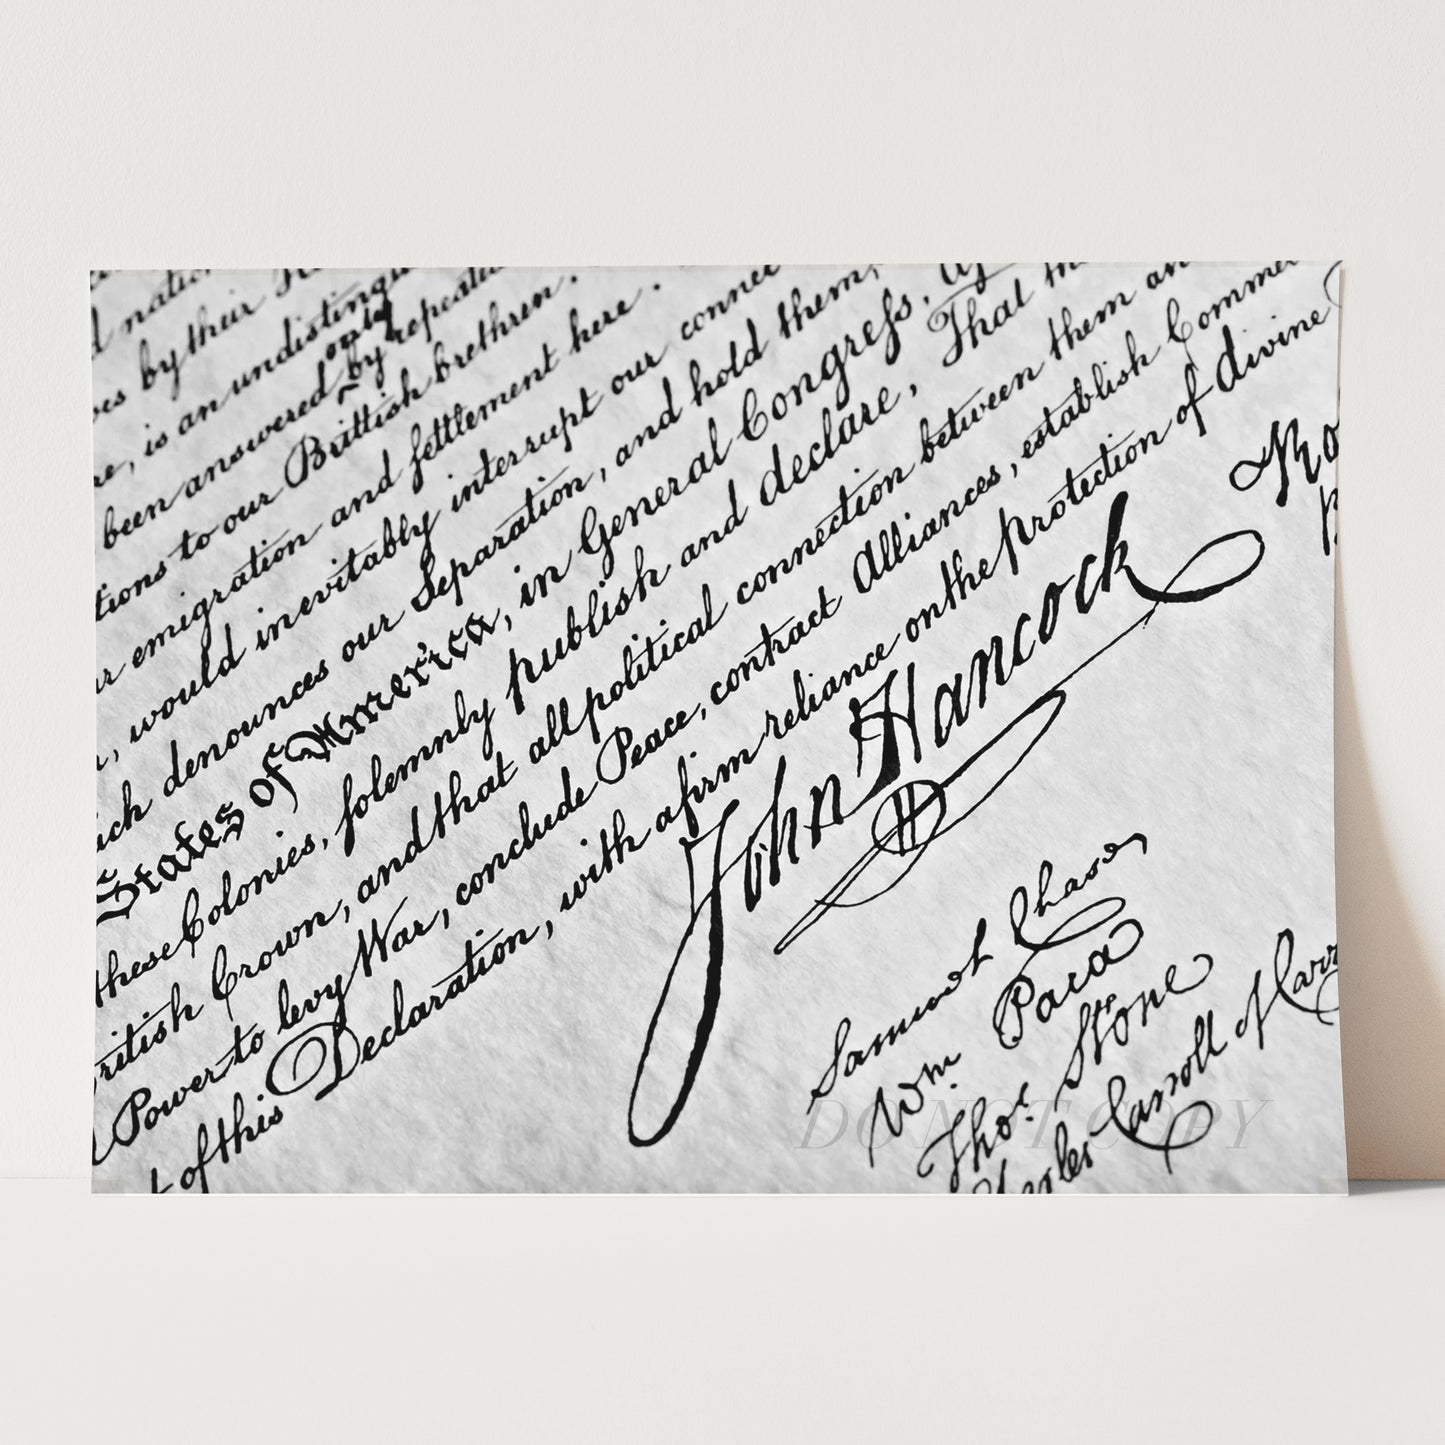 d natio
ves by their
re, is an undistingu
only
been answered by repeated
tions to our Brittish brethren.
emigration and settlement here.
, would inevitably interrupt our connec
which denounces our Separation, and hold them,
States of America, in General Congress,
these Colonies, solemnly publish and declare, That th
British Crown, and that all political connection between them an
Power to levy War, conclude Peace, contract Alliances, establish Commer
of this Declaration, with a firm reliance on the protection of divine
John Hancock
Samuel Chase,
Wm Paca
Thos. Stone
Charles Carroll of Carr
DO NOT COPY